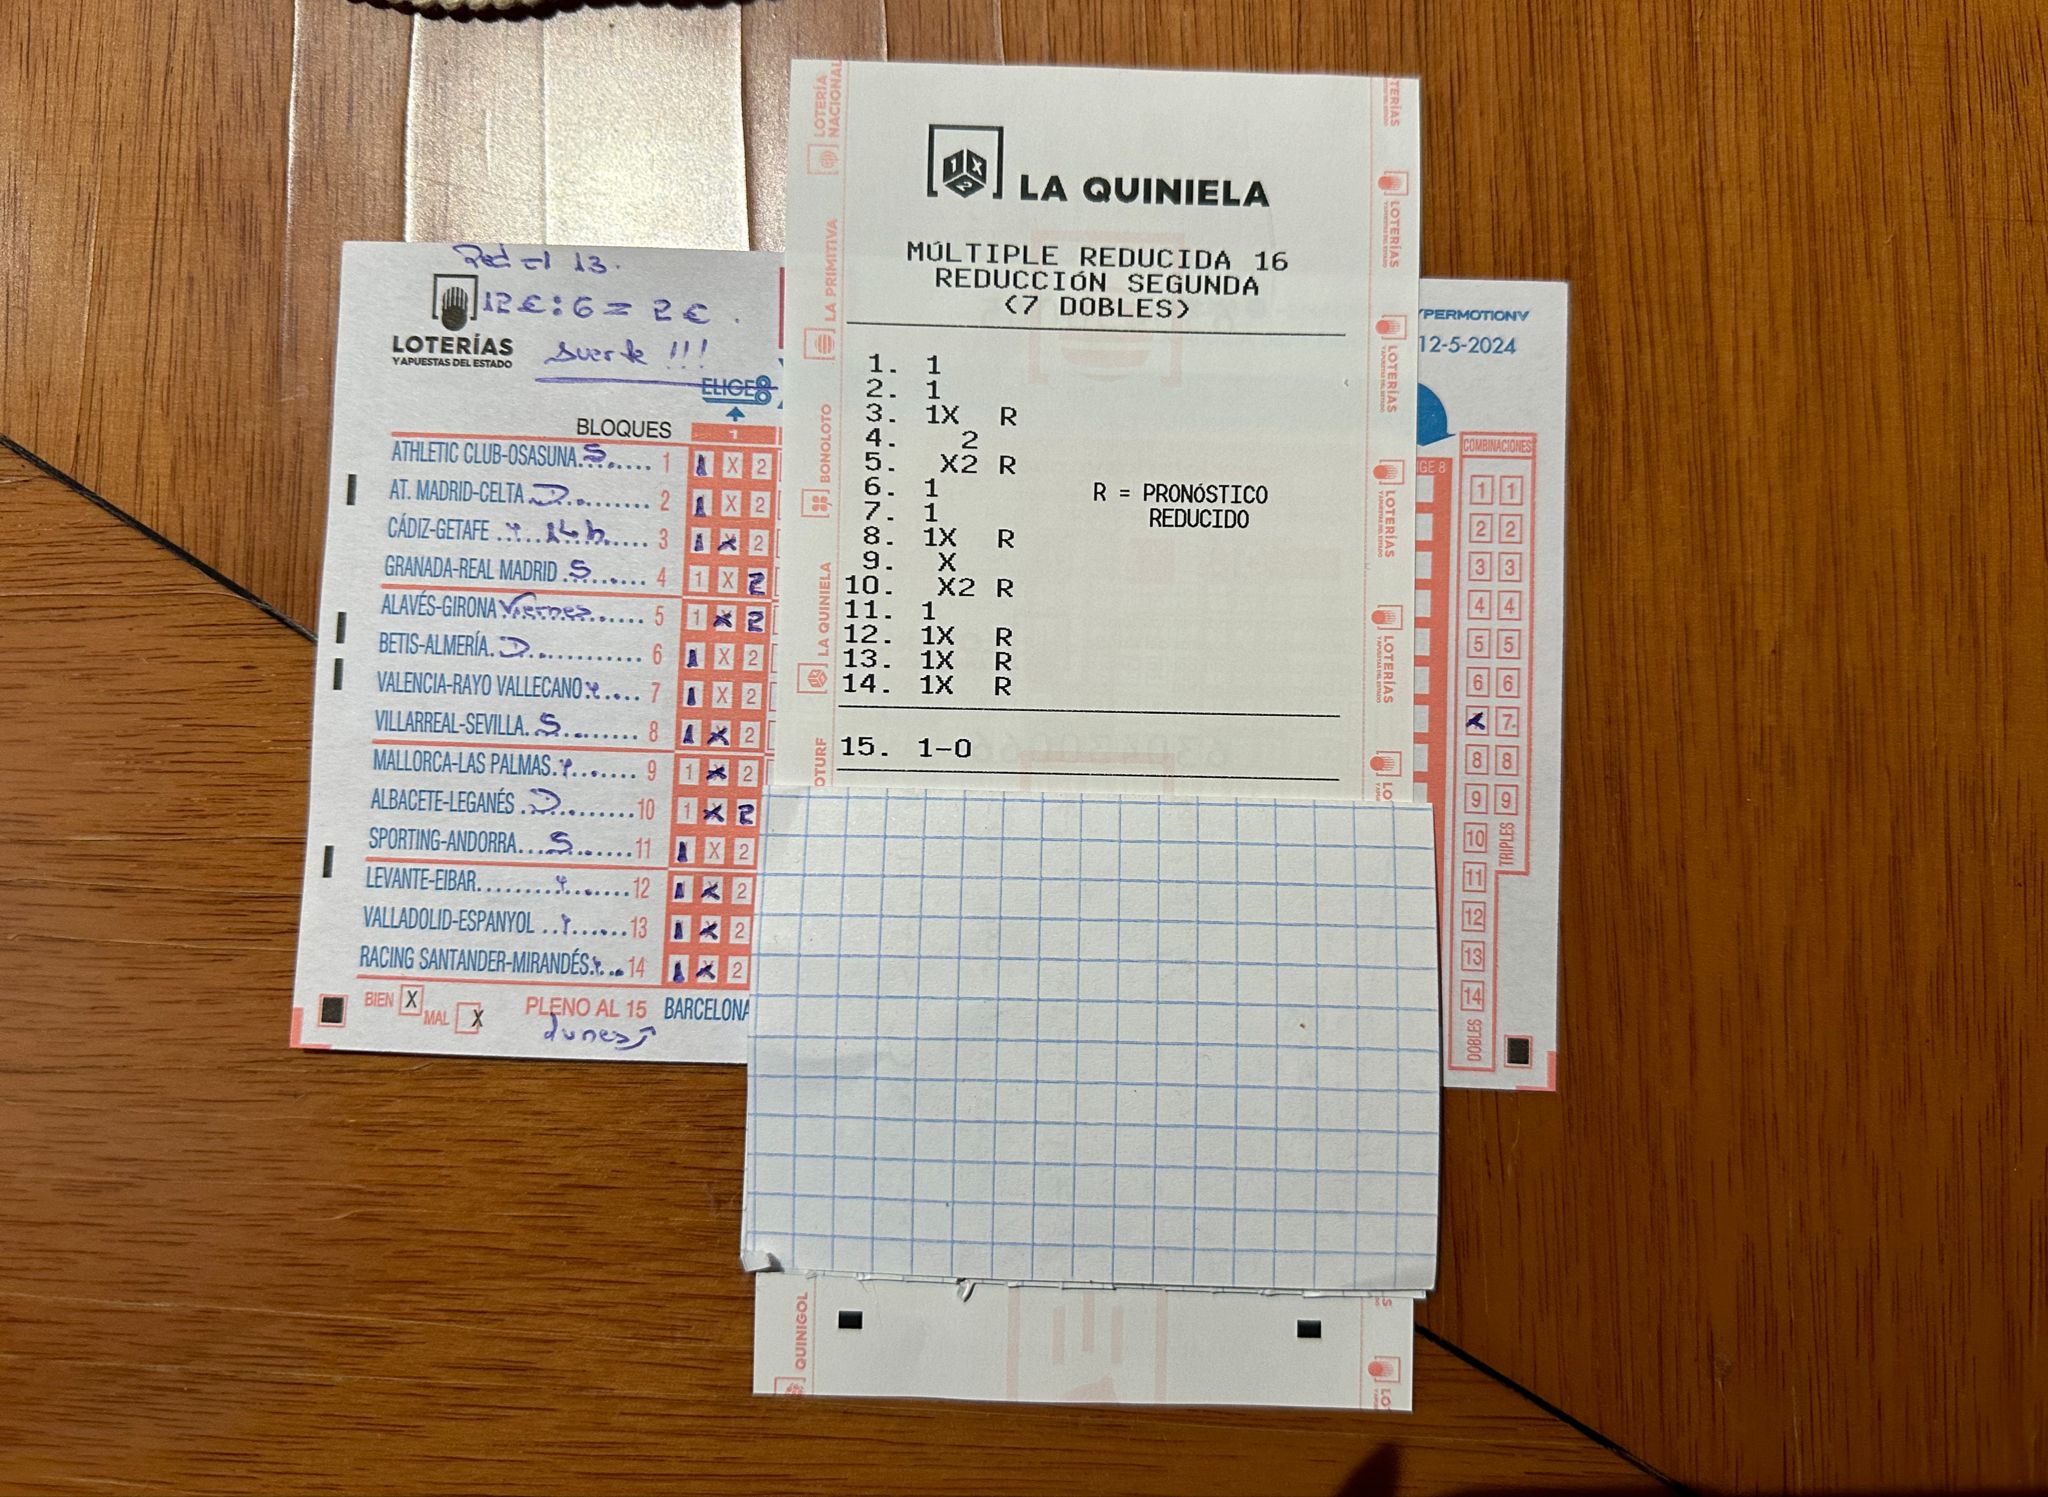 Red-1 13.
12€:6 = 2€.
LOTERÍAS
Y APUESTAS DEL ESTADO
Suerte !!!
ELIGE8
BLOQUES 1
ATHLETIC CLUB-OSASUNA S ...... 1 1 X 2
AT. MADRID-CELTA D ......... 2 1 X 2
CÁDIZ-GETAFE .. 14h ..... 3 1 X 2
GRANADA-REAL MADRID S ..... 4 1 X 2
ALAVÉS-GIRONA Viernes ...... 5 1 X 2
BETIS-ALMERÍA. D ........... 6 1 X 2
VALENCIA-RAYO VALLECANO .... 7 1 X 2
VILLARREAL-SEVILLA. S ...... 8 1 X 2
MALLORCA-LAS PALMAS. ...... 9 1 X 2
ALBACETE-LEGANÉS D ........ 10 1 X 2
SPORTING-ANDORRA... S ...... 11 1 X 2
LEVANTE-EIBAR............. 12 1 X 2
VALLADOLID-ESPANYOL ........ 13 1 X 2
RACING SANTANDER-MIRANDÉS.... 14 1 X 2
BIEN X
MAL X
PLENO AL 15 BARCELONA
lunes
LOTERÍA NACIONAL
LA PRIMITIVA
BONOLOTO
LA QUINIELA
OTURF
QUINIGOL
1X2
LA QUINIELA
MÚLTIPLE REDUCIDA 16
REDUCCIÓN SEGUNDA
(7 DOBLES)
1. 1
2. 1
3. 1X R
4. 2
5. X2 R
6. 1
7. 1
8. 1X R
9. X
10. X2 R
11. 1
12. 1X R
13. 1X R
14. 1X R
R = PRONÓSTICO
REDUCIDO
15. 1-0
TERÍAS
LOTERÍAS
LOTERÍAS
LOTERÍAS
LOTERÍAS
LO
S
LO
YPERMOTION
12-5-2024
IGE 8
COMBINACIONES
1 1
2 2
3 3
4 4
5 5
6 6
X 7
8 8
9 9
10
11
12
13
14
TRIPLES
DOBLES